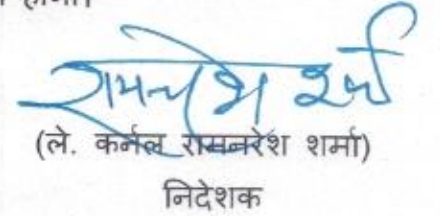 रामनरेश शर्मा
(ले. कर्नल रामनरेश शर्मा)
निदेशक